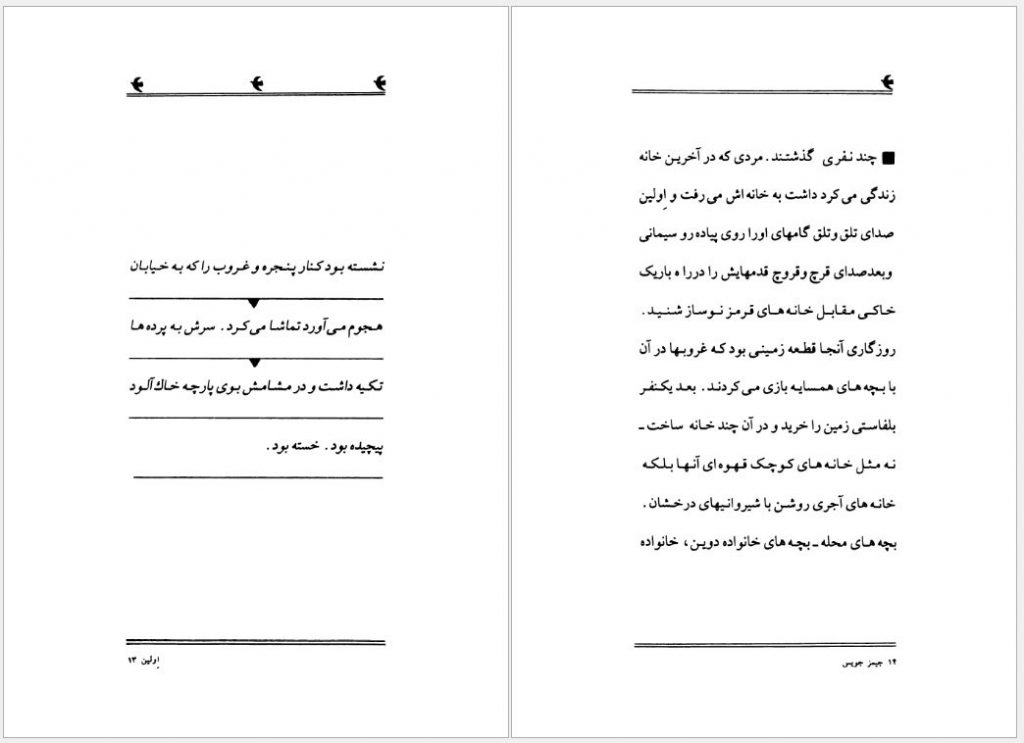 نشسته بود کنار پنجره و غروب را که به خیابان
هجوم می‌آورد تماشا می‌کرد. سرش به پرده‌ها
تکیه داشت و در مشامش بوی پارچه خاك‌آلود
پیچیده بود. خسته بود.
اِولین ۱۳
■ چند نفری گذشتند. مردی که در آخرین خانه
زندگی می‌کرد داشت به خانه‌اش می‌رفت و اِولین
صدای تلق وتلق گامهای اورا روی پیاده‌رو سیمانی
وبعدصدای قرچ وقروچ قدمهایش را دررا ه باریک
خاکی مقابل خانه‌های قرمز نوساز شنید.
روزگاری آنجا قطعه زمینی بود که غروبها در آن
با بچه‌های همسایه بازی می‌کردند. بعد یکنفر
بلفاستی زمین را خرید و در آن چند خانه ساخت ـ
نه مثل خانه‌های کوچک قهوه‌ای آنها بلکه
خانه‌های آجری روشن با شیروانیهای درخشان.
بچه‌های محله ـ بچه‌های خانواده دوین، خانواده
۱۴ جیمز جویس